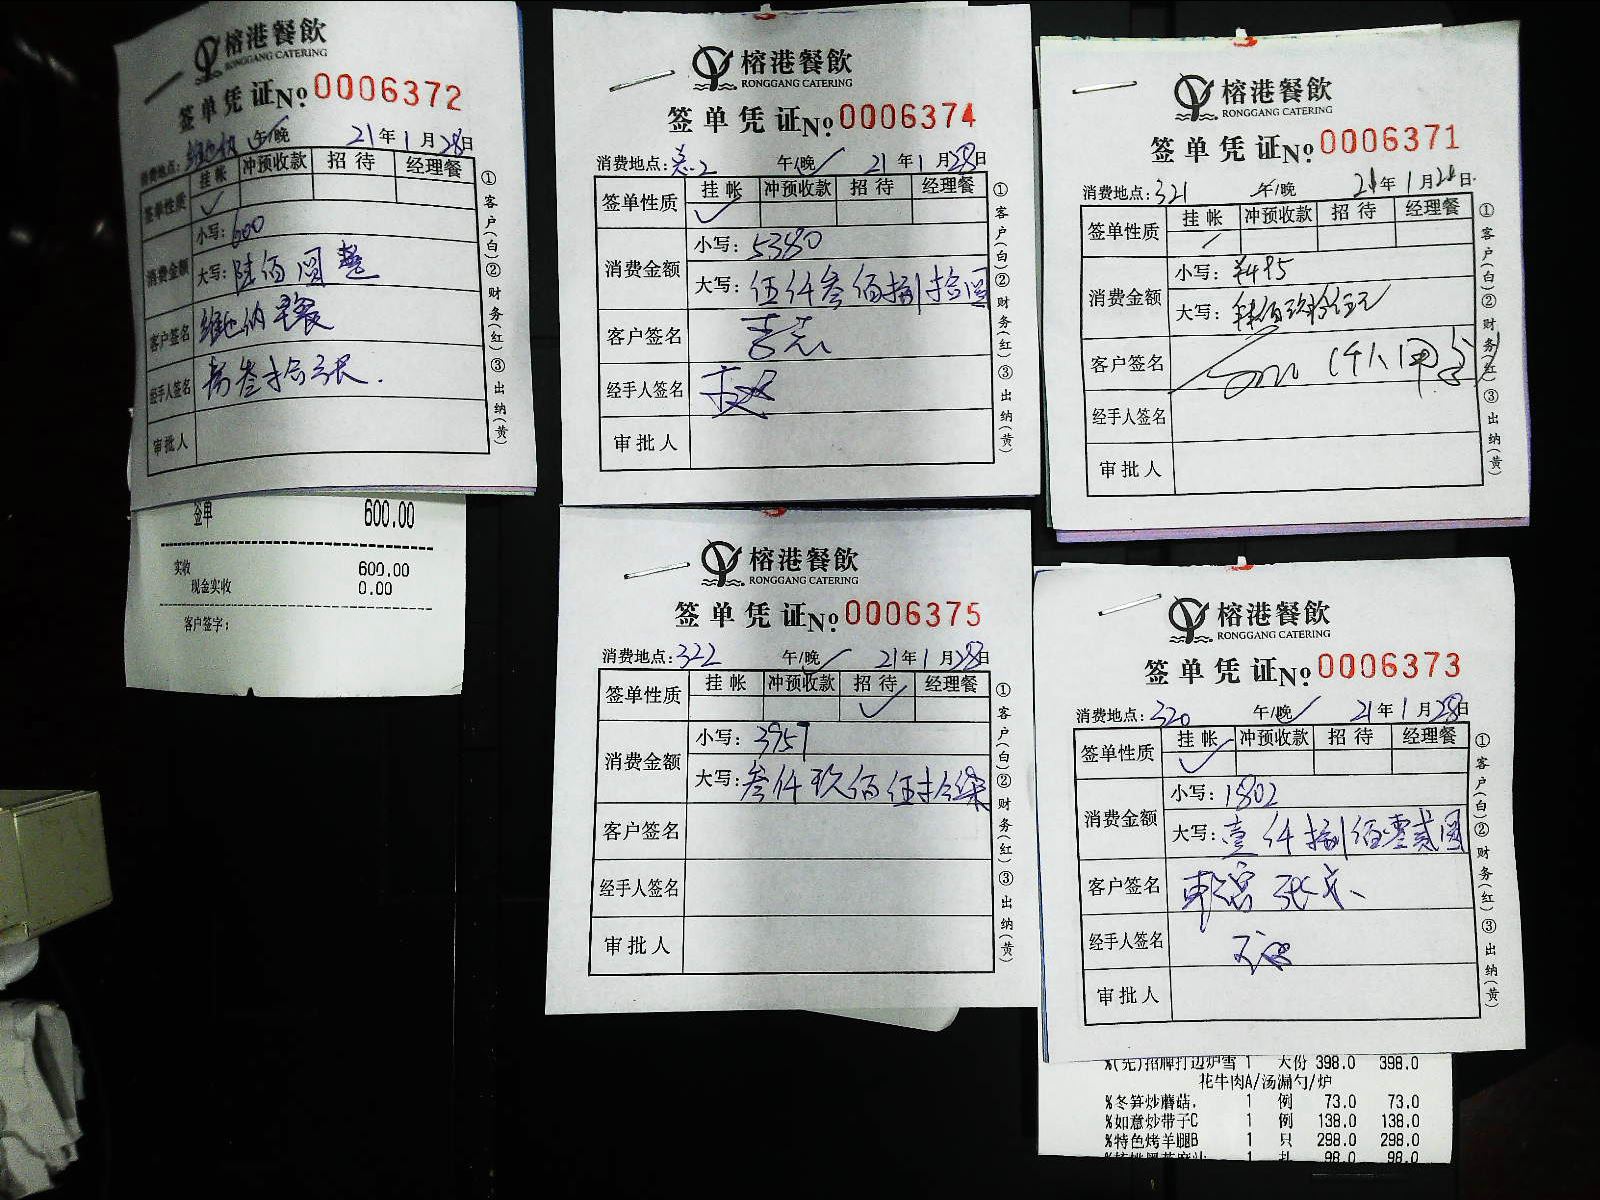 榕港餐飲
RONGGANG CATERING
签单凭证No. 0006372
消费地点: 维也纳 午/晚 21年1月28日
签单性质 挂帐 冲预收款 招待 经理餐
消费金额 小写: 600
大写: 陆佰圆整
客户签名 维也纳早餐
经手人签名 叁拾张.
审批人
①客户(白)②财务(红)③出纳(黄)
签单 600.00
实收 600.00
现金实收 0.00
客户签字:
榕港餐飲
RONGGANG CATERING
签单凭证No. 0006374
消费地点: 午/晚 21年1月28日
签单性质 挂帐 冲预收款 招待 经理餐
消费金额 小写: 5380
大写: 伍仟叁佰捌拾圆
客户签名
经手人签名
审批人
①客户(白)②财务(红)③出纳(黄)
榕港餐飲
RONGGANG CATERING
签单凭证No. 0006371
消费地点: 321 午/晚 21年1月28日
签单性质 挂帐 冲预收款 招待 经理餐
消费金额 小写: ¥495
大写: 肆佰玖拾伍元
客户签名
经手人签名
审批人
①客户(白)②财务(红)③出纳(黄)
榕港餐飲
RONGGANG CATERING
签单凭证No. 0006375
消费地点: 322 午/晚 21年1月28日
签单性质 挂帐 冲预收款 招待 经理餐
消费金额 小写: 3957
大写: 叁仟玖佰伍拾柒
客户签名
经手人签名
审批人
①客户(白)②财务(红)③出纳(黄)
榕港餐飲
RONGGANG CATERING
签单凭证No. 0006373
消费地点: 320 午/晚 21年1月28日
签单性质 挂帐 冲预收款 招待 经理餐
消费金额 小写: 1802
大写: 壹仟捌佰零贰圆
客户签名
经手人签名
审批人
①客户(白)②财务(红)③出纳(黄)
%(先)招牌打边炉雪 1 大份 398.0 398.0
花牛肉A/汤漏勺/炉
%冬笋炒蘑菇. 1 例 73.0 73.0
%如意炒带子C 1 例 138.0 138.0
%特色烤羊腿B 1 只 298.0 298.0
1 扎 98.0 98.0